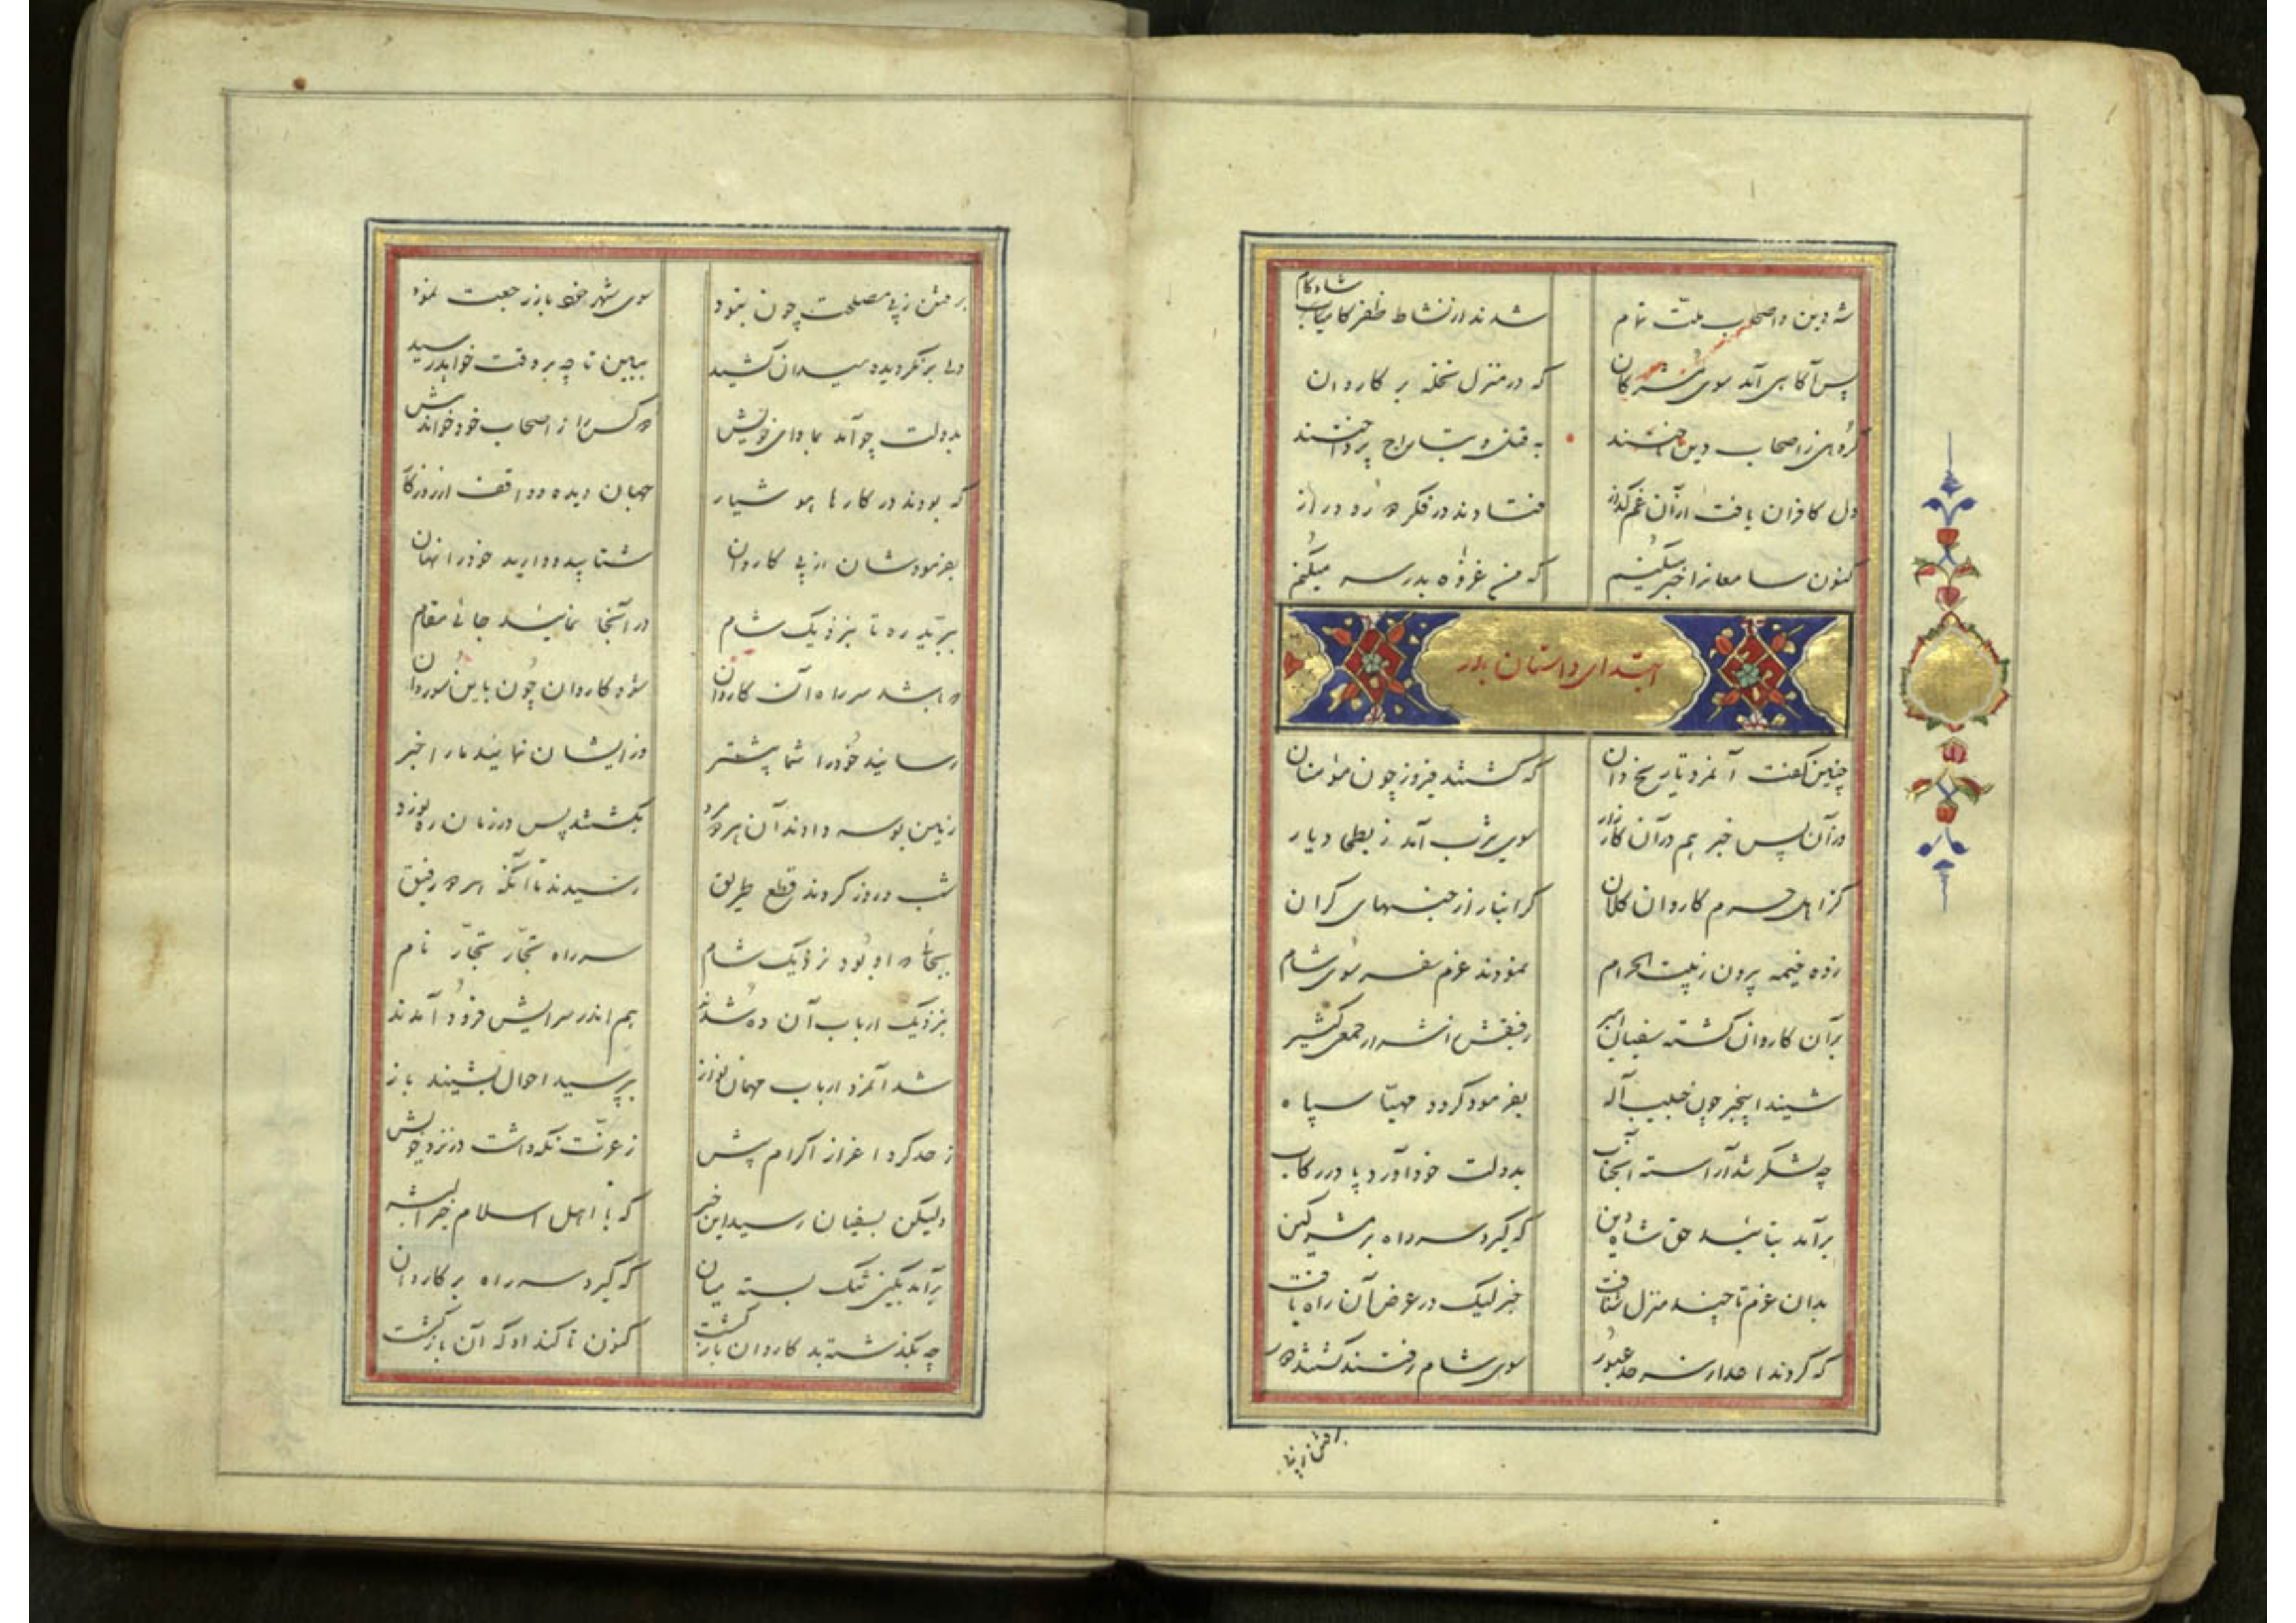 شه دین و اصحاب ملت تمام شدند از نشاط ظفر کامیاب شادکام
پس آگاهی آمد سوی مشرکان که در منزل نخله بر کاروان
گروهی ز اصحاب دین تاختند به قتل و بتاراج پرداختند
دل کافران یافت از آن غم گداز فتادند در فکر دور و دراز
کنون سامعانرا خبر میکنم که من غزوه بدر سر میکنم
ابتدای داستان بدر
چنین گفت آنمرد تاریخ دان که گشتند فیروز چون مومنان
در آن پس خبر هم در آن کارزار سوی یثرب آمد ز بطحا دیار
کز اهل حرم کاروان کلان گرانبار از جنسهای گران
زده خیمه بیرون ز بیت الحرام نمودند عزم سفر سوی شام
بر آن کاروان گشته سفیان امیر رفیقش ز اشرار جمعی کثیر
شنید اینخبر چون حبیب آله بفرمود گردد مهیا سپاه
چه لشکر شد آراسته آنجناب بدولت خود آورد پا در رکاب
برآمد بتائید حق شاه دین که گیرد سر راه بر مشرکین
بدان عزم تا چند منزل شتافت خبر لیک در عرض آن راه یافت
که کردند اعدا ز سرحد عبور سوی شام رفتند گشتند دور
برفتن ز پی
برفتن ز پی مصلحت چون نبود سوی شهر خود باز رجعت نمود
ولی برنگردیده میدان کشید ببین تا چه بر وقت خواهد رسید
بدولت چو آمد بماوای خویش دو کس را ز اصحاب خود خواند پیش
که بودند در کارها هوشیار جهان دیده و واقف از روزگار
بفرمودشان از پی کاروان شتابید و دارید خود را نهان
ببرید ره تا بنزدیک شام در آنجا نمائید جائی مقام
که باشد سر راه آن کاروان شود کاروان چون باین سو روان
رسانید خود را شما پیشتر وز ایشان نمائید ما را خبر
زمین بوسه دادند آن هر دو مرد بگشتند پس در زمان ره نورد
شب و روز کردند قطع طریق رسیدند تا آنکه هر دو رفیق
بجائی که او بود نزدیک شام سر راه تجار تجار نام
بنزدیک ارباب آن ده شدند هم اندر سرایش فرود آمدند
شد آنمرد ارباب مهمان نواز بپرسید احوال بنشیند باز
ز حد کرد اعزاز اکرام بیش ز عزت نگه داشت در نزد خویش
ولیکن بسفیان رسید این خبر که با اهل اسلام خیرالبشر
برآمد بکین تنگ بسته میان که گیرد سر راه بر کاروان
چه بگذشته بد کاروان بازگشت کنون تا کند او که آن بازگشت